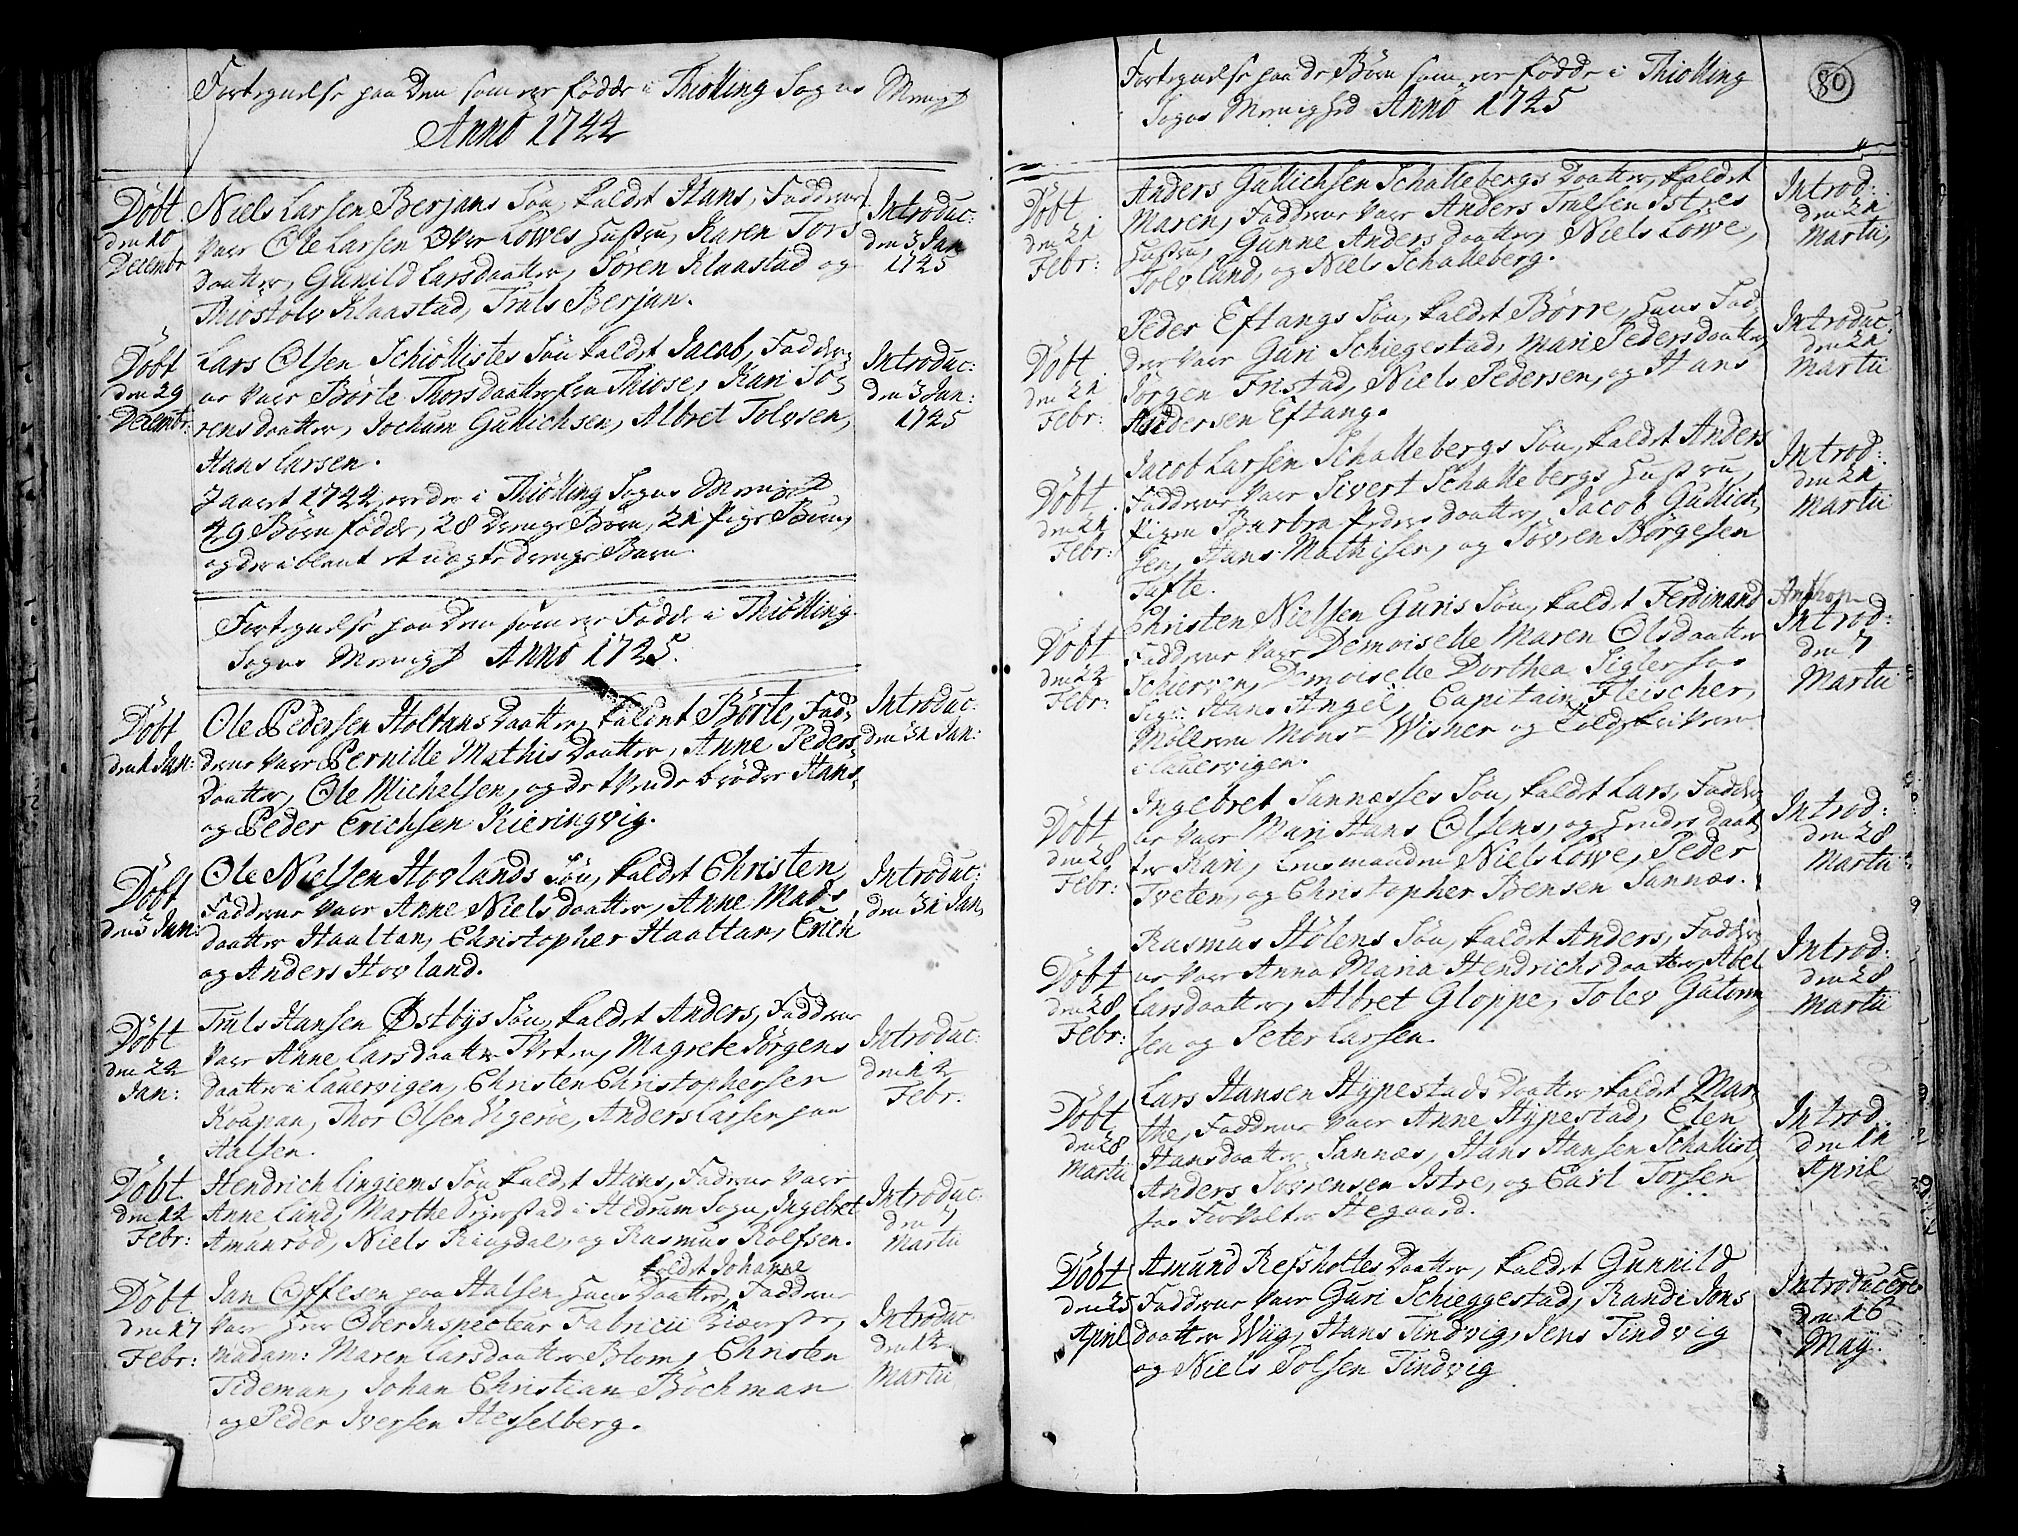 Fortegnelse paa Den som ere födde i Thiölling Sogns Menigh
Anno 1744
Döbt
den 10
Decembr
Niels Larsen Berjans Sön, kaldet Hans, Faddere
vare Ole Larsen Över Löwes Hustru, Karen Tors
daatter, Gunild Larsdaatter, Sören Klaastad og
Thiöstolv Klaastad, Truls Berjan.
Introduc:
den 3 Jan
1745
Döbt
den 29
Decembr:
Lars Olsen Schiöllistes Sön kaldet Jacob, Fadder
ne vare Börte Thorsdaatter fra Thiose, Kari Sö
rensdaatter, Jochum Gullichsen, Albret Tolvsen,
Hans Larsen.
Introduc:
den 3 Jan:
1745
I aaret 1744, er der i Thiölling Sogns Menigh
49 Börn födde, 28 Drenge Börn, 21 Pige Börn,
og der iblant et uægte drenge Barn.
Fortegnelse paa Dem som ere Födde i Thiölling
Sogns Menigh Anno 1745.
Döbt
den 1 Jan:
Ole Pedersen Holtans Daatter, kaldet Börte, Fad-
derne vare Pernille Mathisdaatter, Anne Peders
daatter, Ole Michelsen, og de tvende brödre Hans
og Peder Erichsen Kieringvig.
Introduc:
den 31 Jan:
Döbt
den 5 Jan:
Ole Nielsen Hovlands Sön, kaldet Christen
Fadderne vare Anne Nielsdaatter, Anne Mads
daatter Haaltan, Christopher Haaltan, Erich
og Anders Hovland.
Introduc:
den 31 Jan,
Döbt
den 24
Jan:
Truls Hansen Östbys Sön, kaldet Anders, Faddere
vare Anne Larsdaatter Tveten, Magrete Jörgens
daatter i Lauervigen, Christen Christophersen
Kaupan, Thor Olsen Vigeröe, Anders Larsen paa
Halsen.
Introduc:
den 12
Febr.
Döbt
den 12
Febr:
Hendrich Lingiems Sön kaldet Hans, Faddere vare
Anne Land, Marthe in Hedrum Sogn, Ingebret
Amanröd, Niels Ringdal, og Rasmus Rolfsen.
Introduc:
den 7
Martii
kaldet Johanne
Döbt
den 17
Febr:
Jan Offesen paa Halsen hans Daatter, Faddere
vare Herr Ober Inspecteur Fabricii Kiereste,
Madam: Maren Larsdaatter Blom, Christen
Tideman, Johan Christian Böchman
og Peder Iversen Hesselberg.
Introduc
den 12
Martii
Fortegnelse paa de Börn som ere födde i Thiölling
Sogns Menighed Anno 1745
80
Döbt
den 21
Febr:
Anders Gullichsen Schallebergs Daatter, kaldet
Maren, Faddere vare Anders Trulsen Istres
Hustru, Gunne Andersdaatter, Niels Löwe,
Tolv Land, og Niels Schalleberg.
Introd:
den 21
Martii,
Döbt
den 21
Febr:
Peder Eftangs Sön, kaldet Börre, hans Fad
dere vare Guri Schiegestad, Mari Pedersdaatter,
Jörgen Fristad, Niels Pedersen, og Hans
Andersen Eftang.
Introduc:
den 21
Martii
Döbt
den 21
Febr:
Jacob Larsen Schallebergs Sön, kaldet Anders
Fadderne vare Sivert Schallebergs Hustru,
Pigen Barbra Pedersdaatter, Jacob Gullich
sen, Hans Mathisen, og Sövren Börgesen
Tafte.
Introd:
den 21
Martii
Döbt
den 22
Febr:
Christen Nielsen Guris Sön, kaldet Ferdinand Anthon
Fadderne vare Demoiselle Maren Olsdaatter
Schierven, Demoiselle Dorthea Sigler
Sigr: Hans Angel, Capitain Fleischer,
Möllerem Monsr Wisner og Toldskriveren
i Lauervigen.
Introd:
den 7
Martii
Döbt
den 28
Febr:
Ingebret Sannæsses Sön, kaldet Lars, Fadder
ne vare Mari Hans Olsens, og hendes daat
ter Kari, Lensmanden Niels Löwe, Peder
Tveten, og Christopher Brensen Sannæs.
Introd:
den 28
Martii
Döbt
den 28
Febr:
Rasmus Hölens Sön, kaldet Anders, Fadder
ne vare Anna Maria Hendrichsdaatter, Abel
Larsdaatter, Albret Gloppe, Tolev Gutorm
sen og Peter Larsen.
Introd:
den 28
Martii
Döbt
den 28
Martii
Lars Hansen Hÿpestads Daatter, kaldet Mar
the, Fadderne vare Anne Hÿpestad, Elen
Hansdaatter Sannæs, Hans Hansen Schallist,
Anders Sövrensen Istre, og Carl Torsen
hos Forvalter Hegaard.
Introd.
den 11
April
Döbt
den 25
April
Amund Refsholtes Daatter, kaldet Gunnild
Fadderne vare Guri Schieggestad, Randi Jons
daatter Wiig, Hans Tindvig, Jens Tindvig
og Niels Polsen Tindvig
Introducere
den 16
Maÿ.